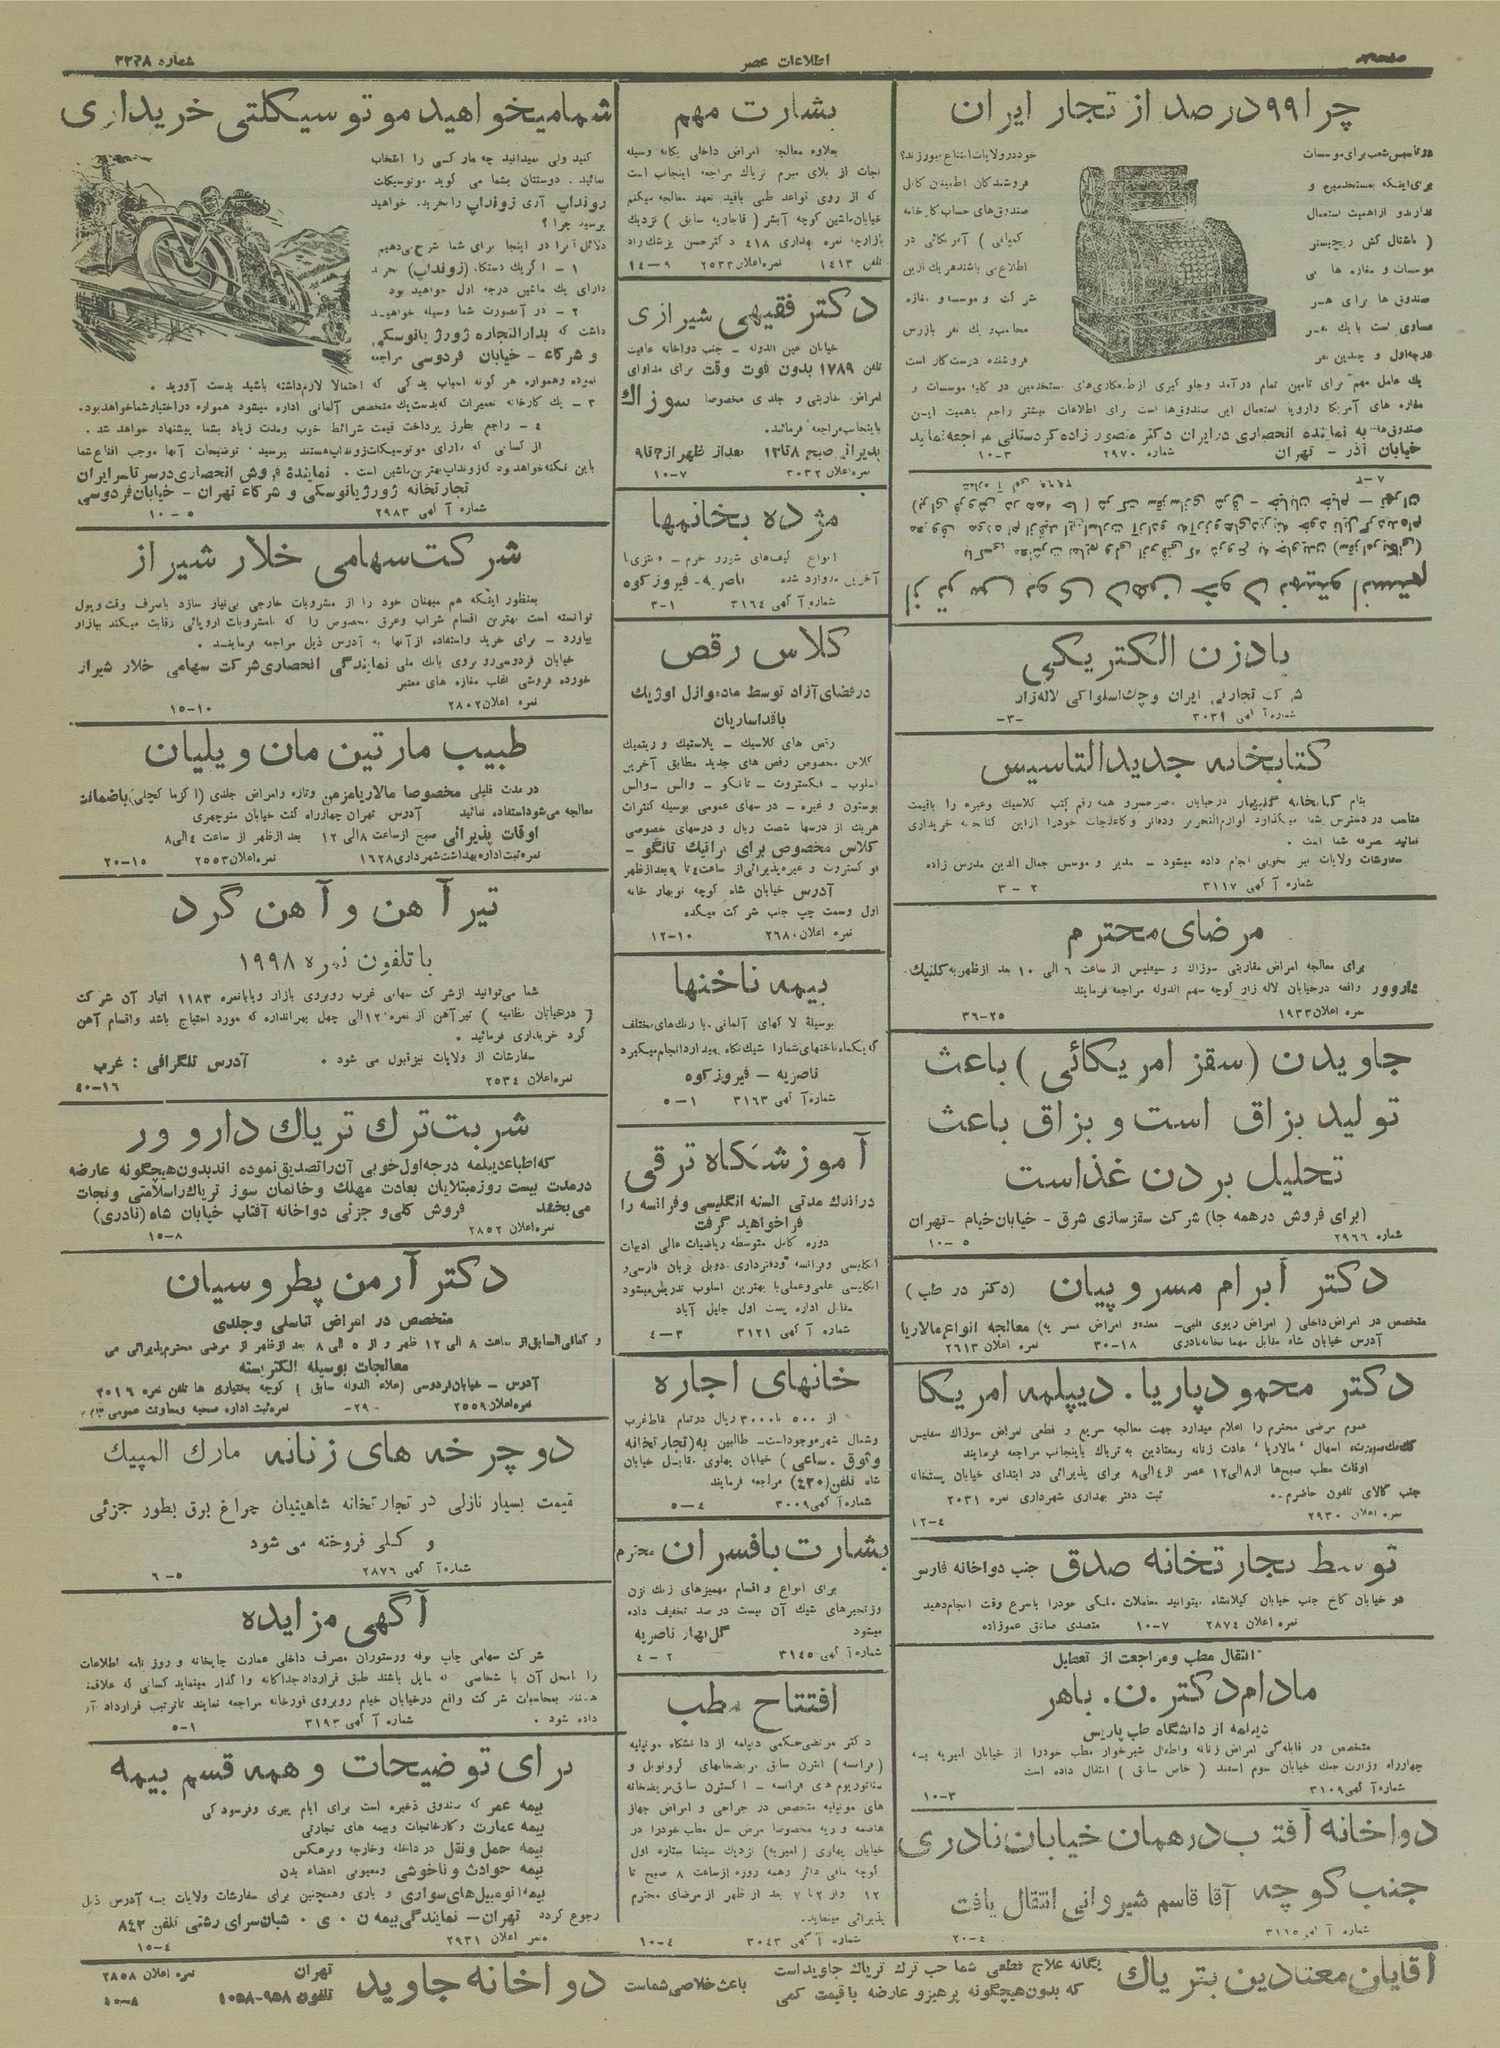 اطلاعات عصر
چرا ۹۹ درصد از تجار ایران
یک عامل مهم برای تامین تمام درآمد و جلو گیری از طمعکاری‌های مستخدمین در کلیه موسسات و
مغازه های آمریکا و اروپا استعمال این صندوق‌ها است برای اطلاعات بیشتر راجع باهمیت این
صندوق‌ها به نماینده انحصاری در ایران دکتر منصور زاده کردستانی مراجعه نمائید
خیابان آذر - تهران شماره ۲۹۷۰ ۳-۱۰
بادزن الکتریکی
شرکت تجارتی ایران و چک‌اسلواکی لاله‌زار
شماره آگهی ۳۰۳۹
کتابخانه جدیدالتاسیس
نمائید صرفه شما است .
سفارشات ولایات نیز بخوبی انجام داده میشود - مدیر و موسس جمال الدین مدرس زاده
شماره آگهی ۳۱۱۷ ۲-۳
مرضای محترم
برای معالجه امراض مقاربتی سوزاک و سیفلیس از ساعت ۶ الی ۱۰ بعد ازظهر به کلنیک
داروور واقعه در خیابان لاله زار کوچه سهم الدوله مراجعه فرمایند
نمره اعلان ۱۹۳۳ ۲۵-۳۶
جاویدن (سقز امریکائی) باعث
تولید بزاق است و بزاق باعث
تحلیل بردن غذاست
(برای فروش در همه جا) شرکت سقزسازی شرق - خیابان خیام - تهران
شماره ۲۹۶۶ ۵-۱۰
دکتر آبرام مسروپیان (دکتر در طب)
متخصص در امراض داخلی ( امراض ریوی قلبی- معده و امراض مسریه) معالجه انواع مالاریا
آدرس خیابان شاه مقابل مهمانخانه نادری ۱۸-۳۰ نمره اعلان ۲۶۱۳
دکتر محمود پاریا. دیپلمه امریکا
عموم مرضی محترم را اعلام میدارد جهت معالجه سریع و قطعی امراض سوزاک سفلیس
اوقات مطب صبح‌ها از ۸ الی ۱۲ عصر از ۴ الی ۸ برای پذیرائی در ابتدای خیابان پستخانه
جنب کالای تلفون حاضرم.. ثبت دفتر بهداری شهرداری نمره ۲۰۳۱
نمره اعلان ۲۹۳۰ ۴-۱۲
توسط تجارتخانه صدق جنب دواخانه فارس
در خیابان کاخ جنب خیابان گیلانشاه میتوانید معاملات ملکی خودرا باسرع وقت انجام دهید
نمره اعلان ۲۸۷۴ ۷-۱۰ متصدی صادق عموزاده
انتقال مطب و مراجعت از تعطیل
مادام دکتر .ن. باهر
دیپلمه از دانشگاه طب پاریس
متخصص در قابله‌گی امراض زنانه واطفال شیرخوار مطب خودرا از خیابان امیریه به
چهارراه وزارت جنگ خیابان سوم اسفند ( خاص سابق ) انتقال داده است
شماره آگهی ۳۱۰۹ ۳-۱۰
دواخانه آفتاب در همان خیابان نادری
جنب کوچه آقا قاسم شیروانی انتقال یافت
شماره آگهی ۳۱۱۵ ۴-۲۰
بشارت مهم
بعلاوه معالجه امراض داخلی یگانه وسیله
نجات از بلای مبرم تریاک مراجعه اینجانب است
که از روی قواعد طبی بافید تعهد معالجه میکنم
تلفن ۱۴۱۳ نمره اعلان ۲۵۳۳ ۹-۱۴
دکتر فقیهی شیرازی
خیابان عین الدوله - جنب دواخانه عافیت
تلفن ۱۷۸۹ بدون فوت وقت برای مداوای
امراض مقاربتی و جلدی مخصوصا سوزاک
باینجانب مراجعه فرمائید.
پذیرائی صبح ۸ تا ۱۲ بعد از ظهر از ۳ تا ۹
نمره اعلان ۳۰۳۲ ۷-۱۰
مژده بخانمها
ناصریه- فیروزکوه
شماره آگهی ۳۱۶۴ ۱-۳
کلاس رقص
در فضای آزاد توسط مادموازل اوژیک
باقداساریان
رقص های کلاسیک - پلاستیک و ریتمیک
کلاس مخصوص رقص های جدید مطابق آخرین
اسلوب - فکستروت - تانگو - والس - والس
بوستون و غیره - درسهای عمومی بوسیله کنترات
هریک از درسها شصت ریال و درسهای خصوصی
آدرس خیابان شاه کوچه نوبهار خانه
اول وسمت چپ جنب شرکت میکده
نمره اعلان ۲۶۸۰ ۱۰-۱۲
بیمه ناخنها
بوسیله لاکهای آلمانی با رنگ‌های مختلف
که یکماه ناخنهای شما را شیک نگاه میدارد انجام میگیرد
ناصریه - فیروزکوه
شماره آگهی ۳۱۶۳ ۱-۵
آموزشگاه ترقی
در اندک مدتی السنه انگلیسی و فرانسه را
فراخواهید گرفت
دوره کامل متوسطه ریاضیات عالی ادبیات
انگلیسی و فرانسه و دفترداری دوبل بزبان فارسی و
انگلیسی علمی و عملی با بهترین اسلوب تدریس میشود
مقابل اداره پست اول جلیل آباد
شماره آگهی ۳۱۲۱ ۳-۴
خانهای اجاره
از ۵۰۰ تا ۳۰۰۰ ریال در تمام نقاط غرب
و شمال شهر موجود است- طالبین به (تجارتخانه
وثوق. ساعی) خیابان پهلوی مقابل خیابان
شاه تلفن (۴۳۰) مراجعه فرمایند
شماره آگهی ۳۰۰۹ ۴-۵
بشارت بافسران محترم
برای انواع و اقسام مهمیزهای زنگ زن
و زنجیرهای شیک آن بیست در صد تخفیف داده
میشود گل‌بهار ناصریه
شماره آگهی ۳۱۴۵ ۲-۴
افتتاح مطب
دکتر مرتضی حکمی دیپلمه از دانشگاه مونپلیه
(فرانسه) انترن سابق مریضخانه‌های گرونوبل و
سناتوریوم های فرانسه - اکسترن سابق مریضخانه
های مونپلیه متخصص در جراحی و امراض جهاز
هاضمه و ریه مخصوصا مرض سل مطب خودرا در
خیابان پهلوی (امیریه) نزدیک سینما ستاره اول
کوچه مافی دائر و همه روزه از ساعت ۸ صبح تا
۱۲ و از ۲ تا ۷ بعد از ظهر از مرضای محترم
پذیرائی مینماید.
شماره آگهی ۳۰۴۳ ۴-۱۰
شما میخواهید موتوسیکلتی خریداری
کنید ولی نمیدانید چه مارکی را انتخاب
نمائید . دوستتان بشما می گوید موتوسیکلت
زونداپ آری زونداپ را بخرید. خواهید
پرسید چرا ؟
دلائل آنرا در اینجا برای شما شرح می‌دهیم
۱ - اگر یک دستگاه (زونداپ) بخرید
دارای یک ماشین درجه اول خواهید بود
۲ - در آنصورت شما وسیله خواهید
داشت که بدارالتجاره ژورژ یانوسکی
و شرکاء - خیابان فردوسی مراجعه
نموده و همواره هر گونه اسباب یدکی که احتمالا لازم داشته باشید بدست آورید .
۳ - یک کارخانه تعمیرات که بدست یک متخصص آلمانی اداره میشود همواره در اختیار شما خواهد بود.
۴ - راجع بطرز پرداخت قیمت شرائط خوب و مدت زیاد بشما پیشنهاد خواهد شد.
از کسانی که دارای موتوسیکلت زونداپ هستند بپرسید . توضیحات آنها موجب اقناع شما
باین نکته خواهد بود که زونداپ بهترین ماشین است . نماینده فروش انحصاری در سرتاسر ایران
تجارتخانه ژورژ یانوسکی و شرکاء تهران - خیابان فردوسی
شماره آگهی ۲۹۸۳ ۵-۱۰
شرکت سهامی خلار شیراز
بمنظور اینکه هم میهنان خود را از مشروبات خارجی بی‌نیاز سازد باصرف وقت و پول
توانسته است بهترین اقسام شراب و عرق مخصوص را که بامشروبات اروپائی رقابت میکند ببازار
بیاورد - برای خرید واستفاده از آنها به آدرس ذیل مراجعه فرمایند .
خیابان فردوسی روبروی بانک ملی نمایندگی انحصاری شرکت سهامی خلار شیراز
خورده فروشی اغلب مغازه های معتبر
نمره اعلان ۲۸۰۲ ۱۰-۱۵
طبیب مارتین مان ویلیان
در مدت قلیلی مخصوصا مالاریا مزمن و تازه و امراض جلدی (اکزما کچلی) باضمانت
معالجه می‌شود استفاده نمائید آدرس تهران چهارراه کنت خیابان منوچهری
اوقات پذیرائی صبح از ساعت ۸ الی ۱۲ بعد از ظهر از ساعت ۴ الی ۸
نمره ثبت اداره بهداشت شهرداری ۱۶۲۸ نمره اعلان ۲۵۵۳ ۱۵-۲۰
تیر آهن و آهن گرد
با تلفون نمره ۱۹۹۸
شما می‌توانید از شرکت سهامی غرب روبروی بازار و یا با نمره ۱۱۸۳ انبار آن شرکت
( در خیابان نظامیه ) تیرآهن از نمره ۱۲ الی چهل بهر اندازه که مورد احتیاج باشد و اقسام آهن
گرد خریداری فرمائید .
سفارشات از ولایات نیز قبول می شود . آدرس تلگرافی : غرب
نمره اعلان ۲۵۳۴ ۱۶-۴۰
شربت ترک تریاک داروور
که اطباء دیپلمه درجه اول خوبی آن را تصدیق نموده اند بدون هیچگونه عارضه
در مدت بیست روز مبتلایان بعادت مهلک و خانمان سوز تریاک را سلامتی و نجات
می‌بخشد فروش کلی و جزئی دواخانه آفتاب خیابان شاه (نادری)
نمره اعلان ۲۸۵۲ ۸-۱۵
دکتر آرمن پطروسیان
متخصص در امراض تناسلی و جلدی
و کمافی السابق از ساعت ۸ الی ۱۲ ظهر و از ۵ الی ۸ بعد ازظهر از مرضی محترم پذیرائی می
معالجات بوسیله الکتریسته
آدرس - خیابان فردوسی (علاء الدوله سابق) کوچه بختیاری ها تلفن نمره ۲۰۱۶
نمره اعلان ۲۵۵۹
دوچرخه های زنانه مارک المپیک
قیمت بسیار نازلی در تجارتخانه شاهینیان چراغ برق بطور جزئی
و کلی فروخته می شود
شماره آگهی ۲۸۷۶ ۵-۶
آگهی مزایده
شرکت سهامی چاپ بوفه و رستوران مصرف داخلی عمارت چاپخانه و روزنامه اطلاعات
را بامحل آن با شخاصی که مایل باشند طبق قرارداد جداگانه واگذار مینماید کسانی که علاقمند
هستند بمحاسبات شرکت واقع در خیابان خیام روبروی قورخانه مراجعه نمایند تا ترتیب قرارداد آن
داده شود . شماره آگهی ۳۱۹۳ ۱-۵
برای توضیحات و همه قسم بیمه
بیمه عمر که صندوق ذخیره است برای ایام پیری و فرسودگی
بیمه عمارت و کارخانجات و بیمه های تجارتی
بیمه حمل و نقل در داخله و خارجه و برعکس
بیمه حوادث و ناخوشی و معیوبی اعضاء بدن
بیمه اتومبیل‌های سواری و باری و همچنین برای سفارشات ولایات به آدرس ذیل
رجوع گردد تهران- نمایندگی بیمه ن . ی . شبان سرای رشتی تلفن ۸۴۲
نمره اعلان ۲۹۳۱ ۴-۱۵
آقایان معتادین بتریاک
یگانه علاج قطعی شما حب ترک تریاک جاوید است
که بدون هیچگونه پرهیز و عارضه با قیمت کمی
باعث خلاصی شماست
دواخانه جاوید
تهران
تلفون ۹۵۸-۱۰۵۸
نمره اعلان ۲۸۵۸